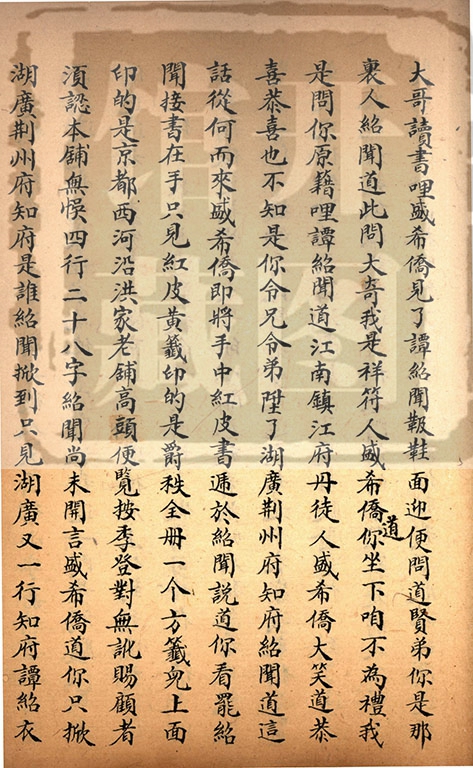 大哥讀書哩盛希僑見了譚紹聞靸鞋面迎便問道賢弟你是那
裏人紹聞道此問大奇我是祥符人盛希僑道你坐下咱不為禮我
是問你原籍哩譚紹聞道江南鎮江府丹徒人盛希僑大笑道恭
喜恭喜也不知是你令兄令弟陞了湖廣荆州府知府紹聞道這
話從何而來盛希僑即將手中紅皮書遞於紹聞說道你看罷紹
聞接書在手只見紅皮黃籤印的是爵秩全册一个方籤兒上面
印的是京都西河沿洪家老舖高頭便覽按季登對無訛賜顧者
須認本舖無悞四行二十八字紹聞尚未開言盛希僑道你只掀
湖廣荆州府知府是誰紹聞掀到只見湖廣又一行知府譚紹衣